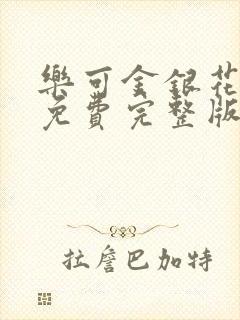 樂可金銀花
免費完整版
拉詹巴加特